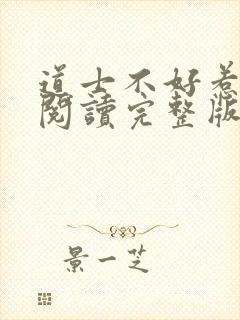 道士不好惹
閱讀完整版
景一芝